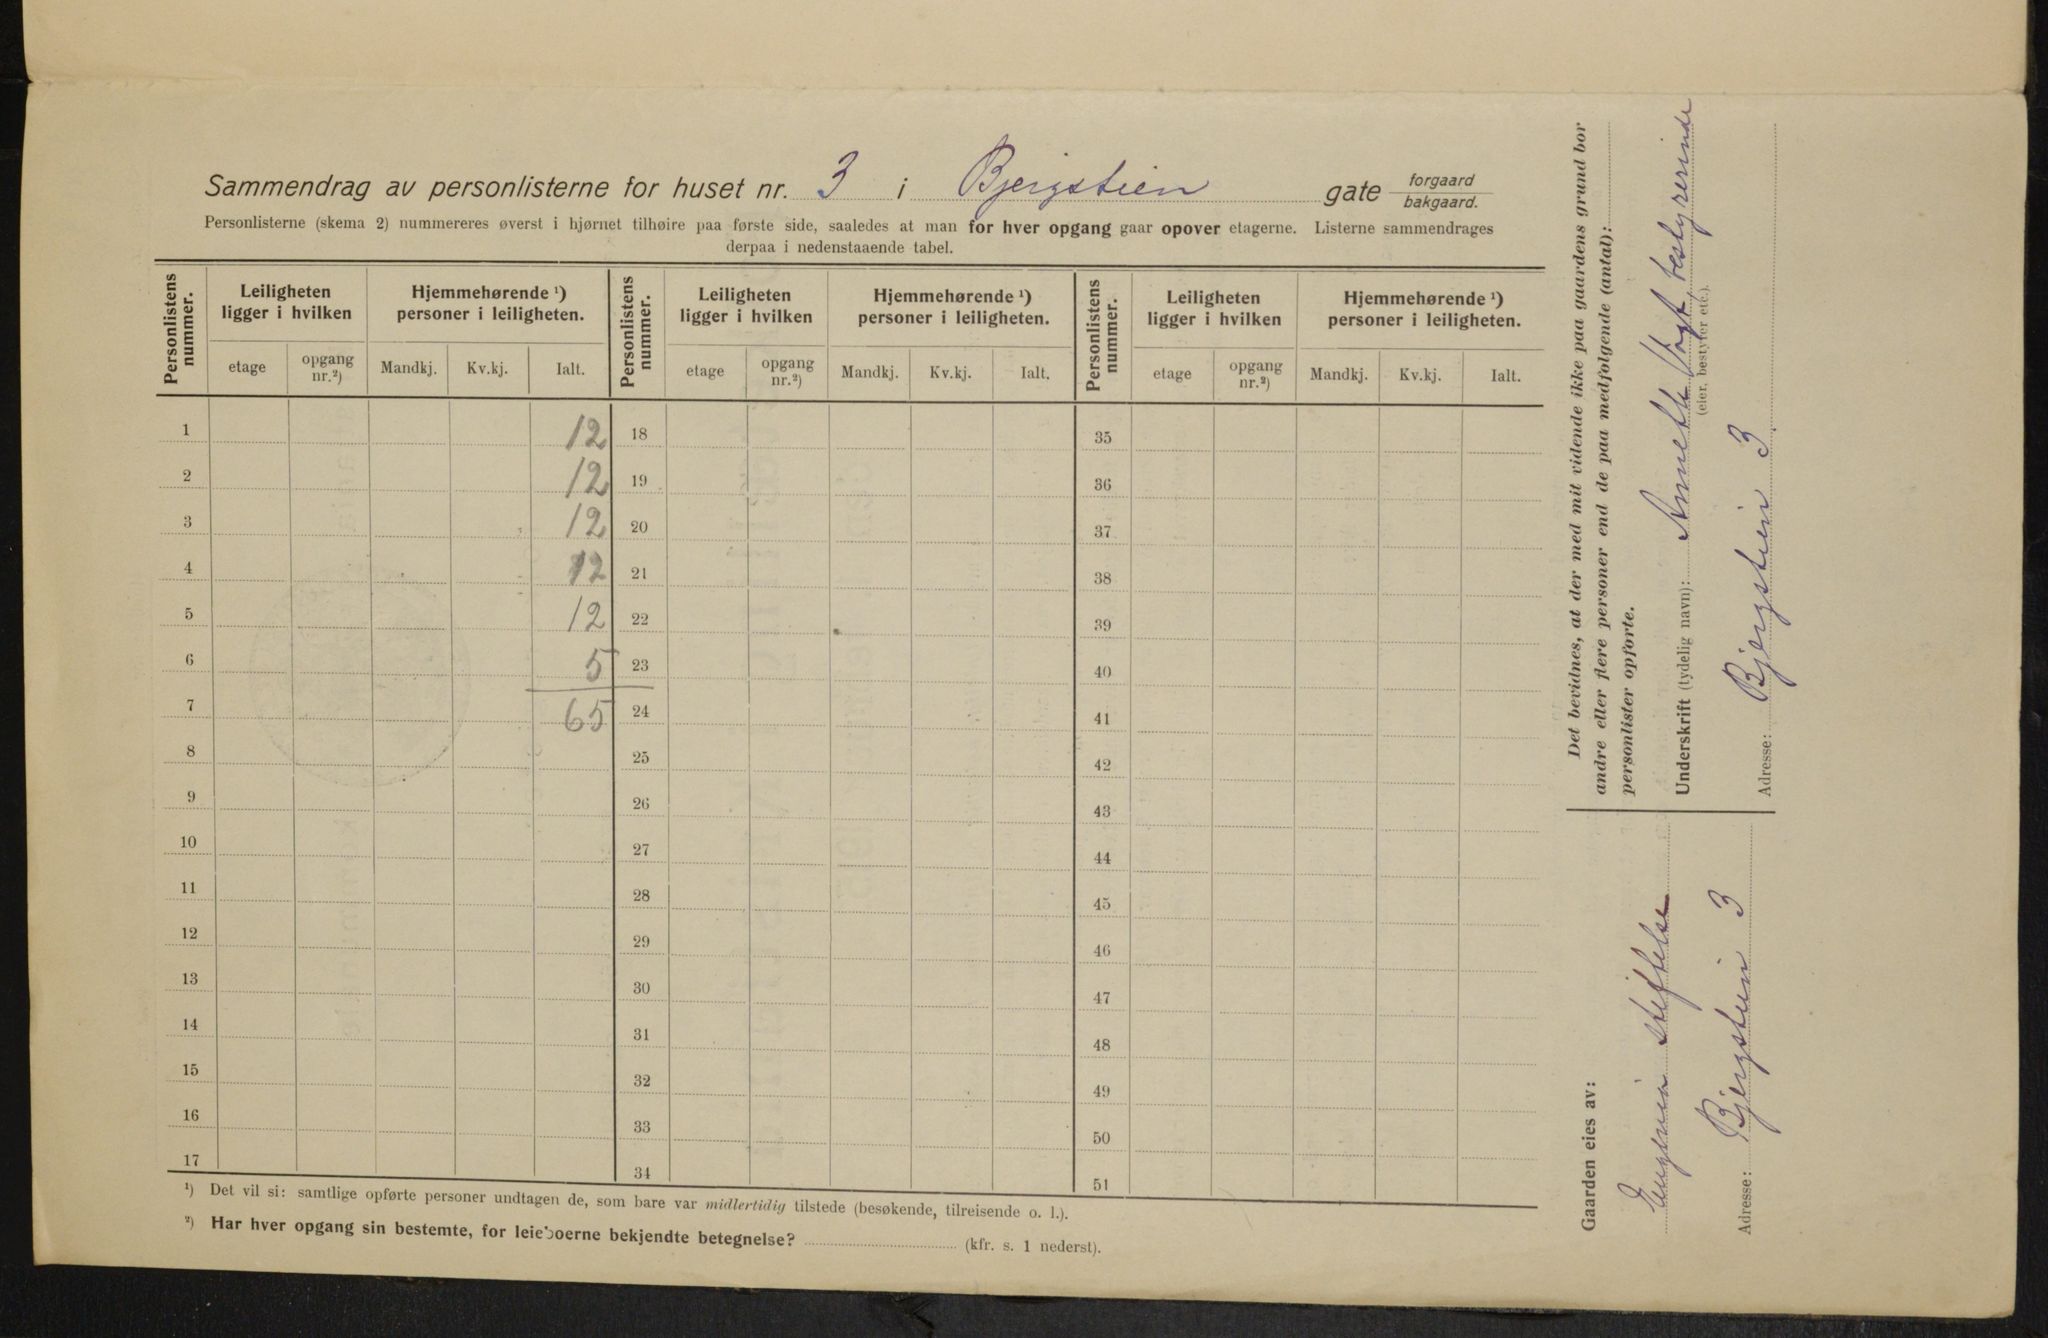 Sammendrag av personlisterne for huset nr. 3 i Bjergstien gate forgaard bakgaard.
Personlisterne (skema 2) nummereres øverst i hjørnet tilhøire paa første side, saaledes at man for hver opgang gaar opover etagerne. Listerne sammendrages
derpaa i nedenstaaende tabel.
Personlistens nummer. Leiligheten ligger i hvilken Hjemmehørende ¹) personer i leiligheten. Personlistens nummer. Leiligheten ligger i hvilken Hjemmehørende ¹) personer i leiligheten. Personlistens nummer. Leiligheten ligger i hvilken Hjemmehørende ¹) personer i leiligheten.
etage opgang nr.²) Mandkj. Kv.kj. Ialt. etage opgang nr.²) Mandkj. Kv.kj. Ialt. etage opgang nr.²) Mandkj. Kv.kj. Ialt.
1 12 18 35
2 12 19 36
3 12 20 37
4 12 21 38
5 12 22 39
6 5 23 40
7 65 24 41
8 25 42
9 26 43
10 27 44
11 28 45
12 29 46
13 30 47
14 31 48
15 32 49
16 33 50
17 34 51
¹) Det vil si: samtlige opførte personer undtagen de, som bare var midlertidig tilstede (besøkende, tilreisende o. l.).
²) Har hver opgang sin bestemte, for leieboerne bekjendte betegnelse? (kfr. s. 1 nederst).
Det bevidnes, at der med mit vidende ikke paa gaardens grund bor
andre eller flere personer end de paa medfølgende (antal):
personlister opførte.
Underskrift (tydelig navn): Annette Vogt, bestyrerinde
(eier, bestyrer etc.).
Adresse: Bjergstien 3
Gaarden eies av:
Eugenia stiftelse
Adresse: Bjergstien 3